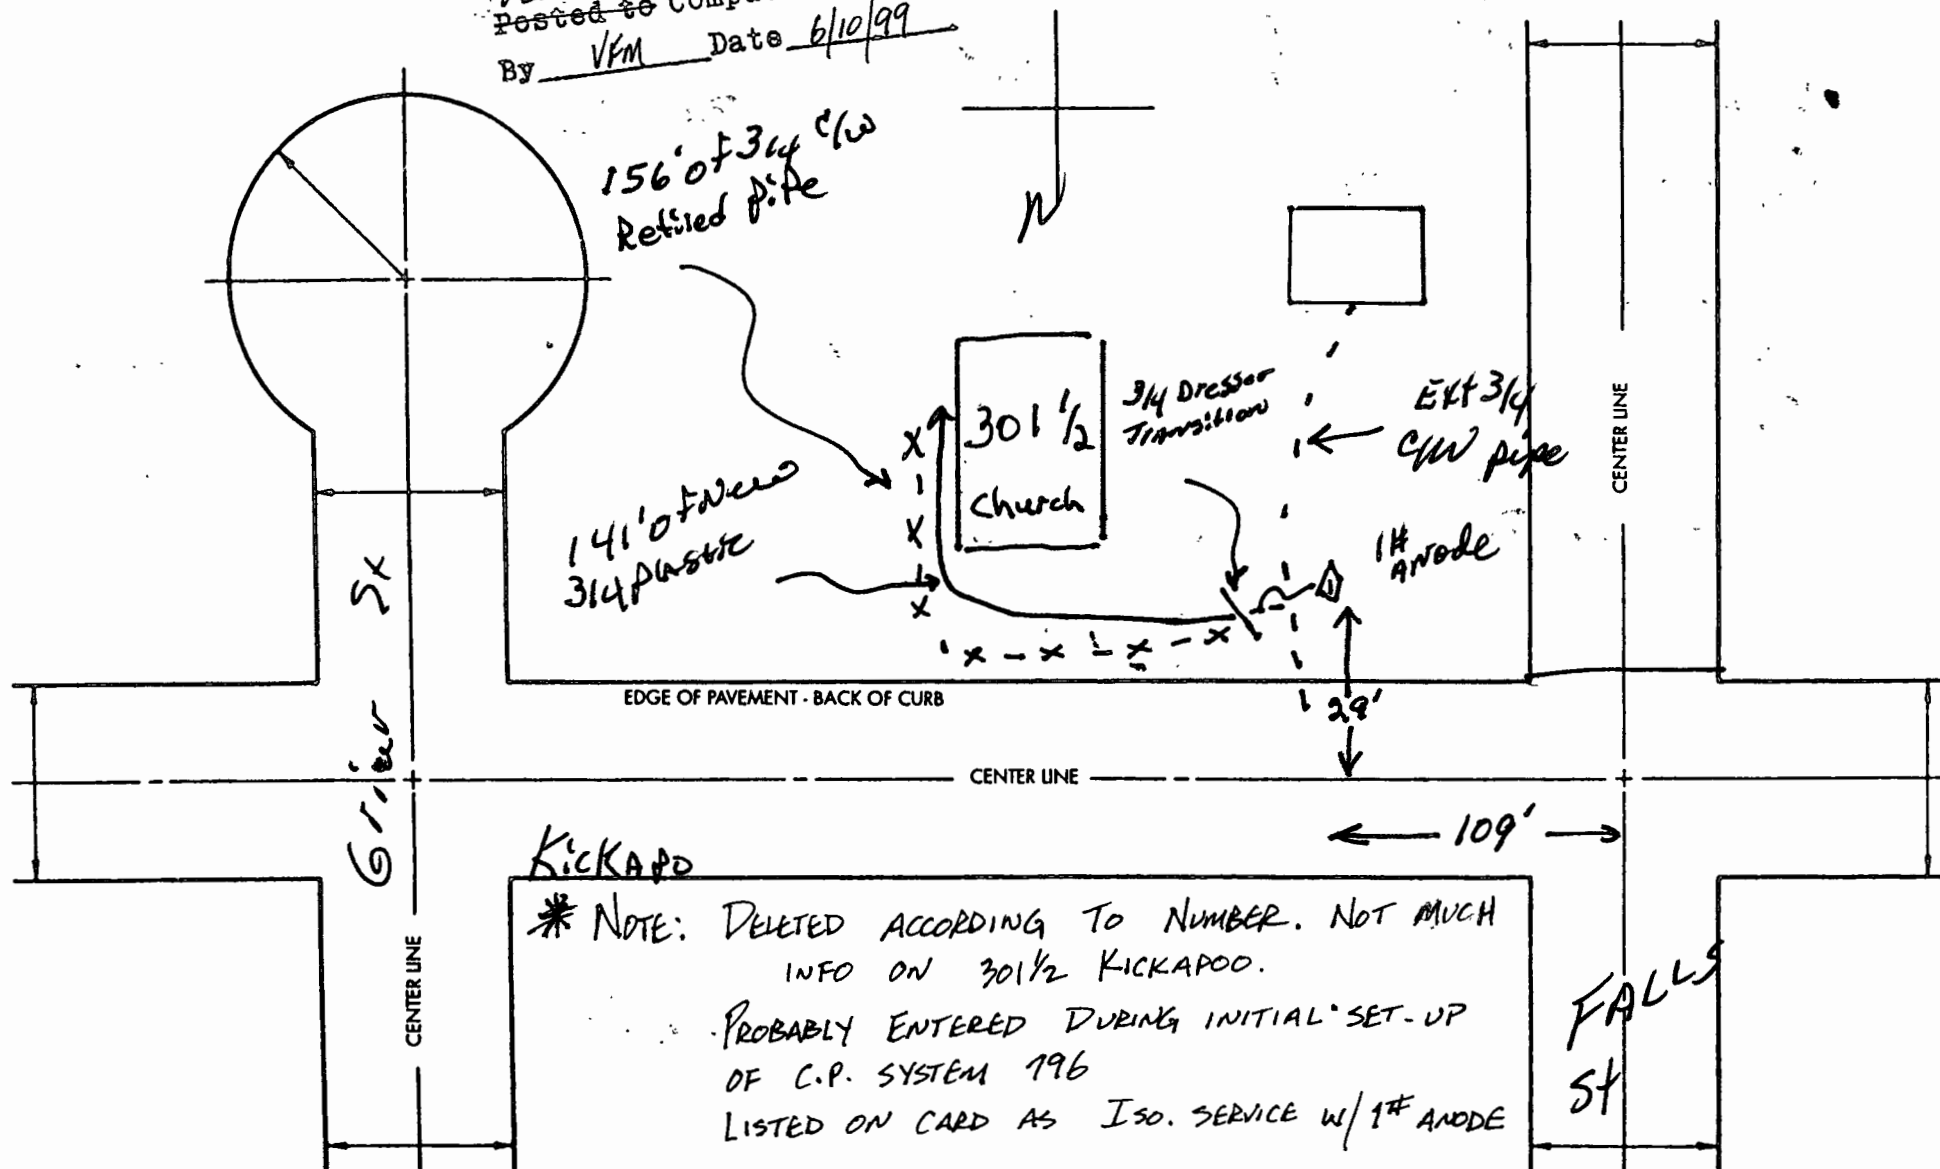 Posted to Compu
By VFM Date 6/10/99
156' of 3/4 C/W
Retired pipe
N
301 1/2
Church
3/4 Dresser
Transition
Ext 3/4
C/W pipe
CENTER LINE
141' of New
3/4 plastic
1#
Anode
1
EDGE OF PAVEMENT - BACK OF CURB
29'
CENTER LINE
109'
Grier St
Kickapo
* NOTE: DELETED ACCORDING TO NUMBER. NOT MUCH
INFO ON 301 1/2 KICKAPOO.
PROBABLY ENTERED DURING INITIAL SET-UP
OF C.P. SYSTEM 796
LISTED ON CARD AS ISO. SERVICE W/ 1# ANODE
CENTER LINE
FALLS
St